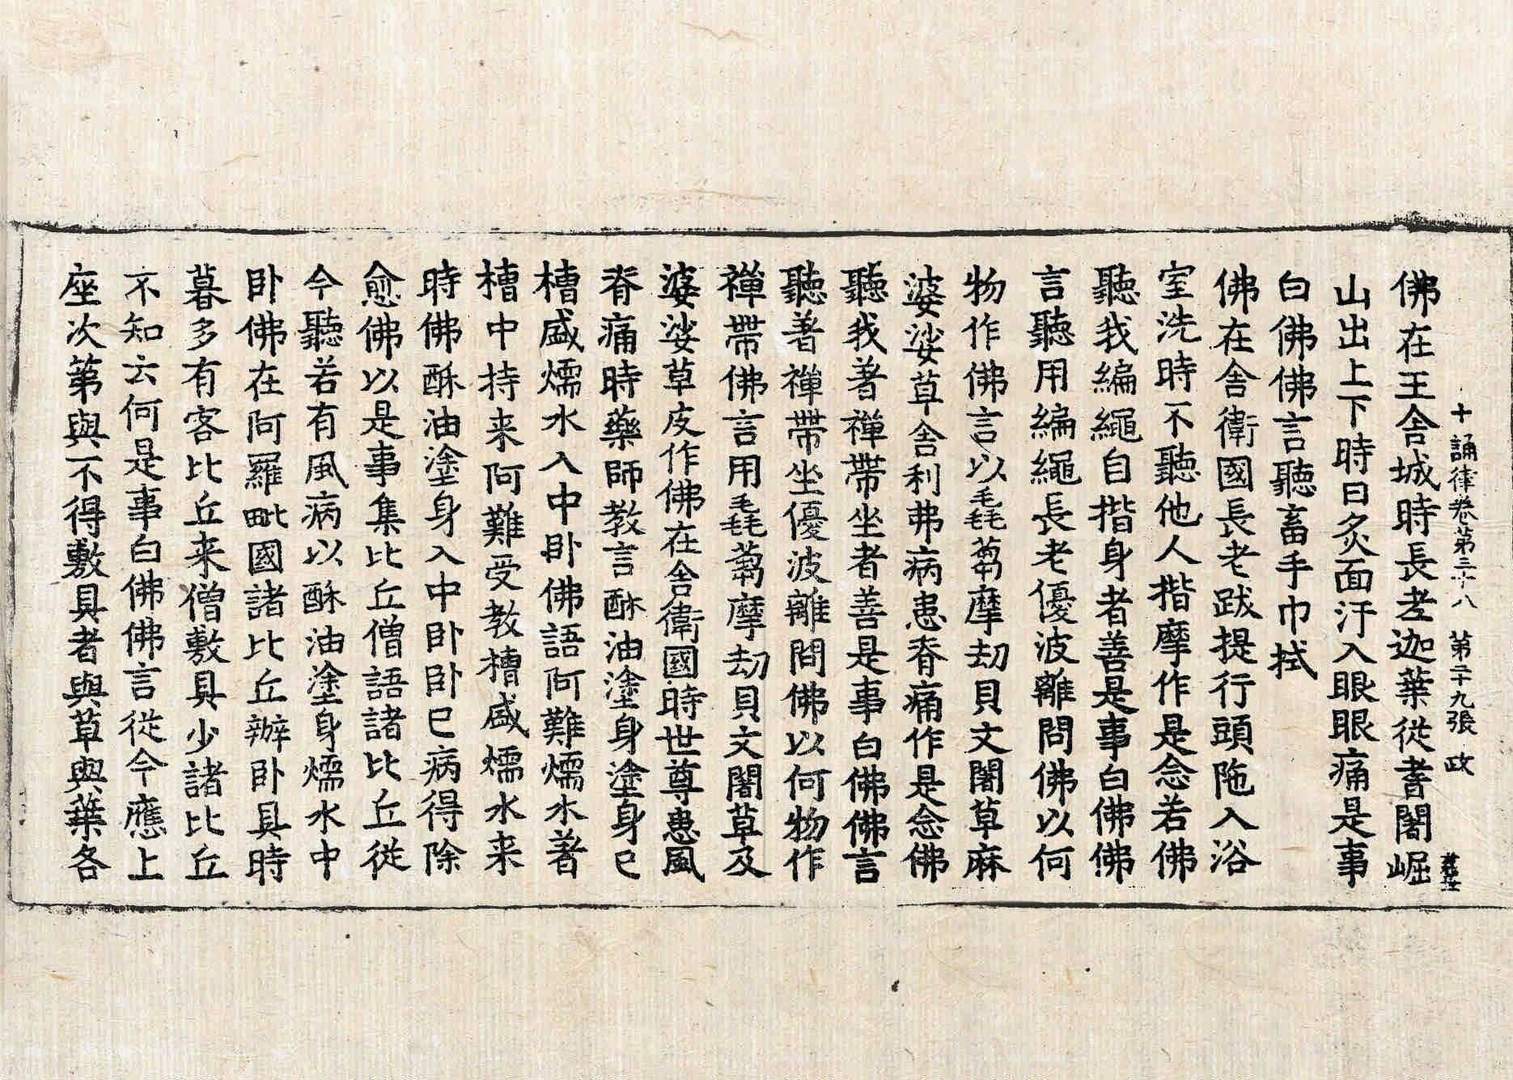 十誦律卷第三十八 第二十九張 政
佛在王舍城時長老迦葉從耆闍崛
山出上下時日炙面汗入眼眼痛是事
白佛佛言聽畜手巾拭
佛在舍衛國長老跋提行頭陁入浴
室洗時不聽他人揩摩作是念若佛
聽我編繩自揩身者善是事白佛佛
言聽用編繩長老優波離問佛以何
物作佛言以毳蒭摩劫貝文闍草麻
婆娑草舍利弗病患脊痛作是念佛
聽我著禪帶坐者善是事白佛佛言
聽著禪帶坐優波離問佛以何物作
禪帶佛言用毳蒭摩劫貝文闍草及
婆娑草皮作佛在舍衛國時世尊患風
脊痛時藥師教言酥油塗身塗身已
槽盛燸水入中卧佛語阿難燸水著
槽中持来阿難受教槽盛燸水来
時佛酥油塗身入中卧卧已病得除
愈佛以是事集比丘僧語諸比丘從
今聽若有風病以酥油塗身燸水中
卧佛在阿羅毗國諸比丘辦卧具時
暮多有客比丘来僧敷具少諸比丘
不知云何是事白佛佛言從今應上
座次第與不得敷具者與草與葉各